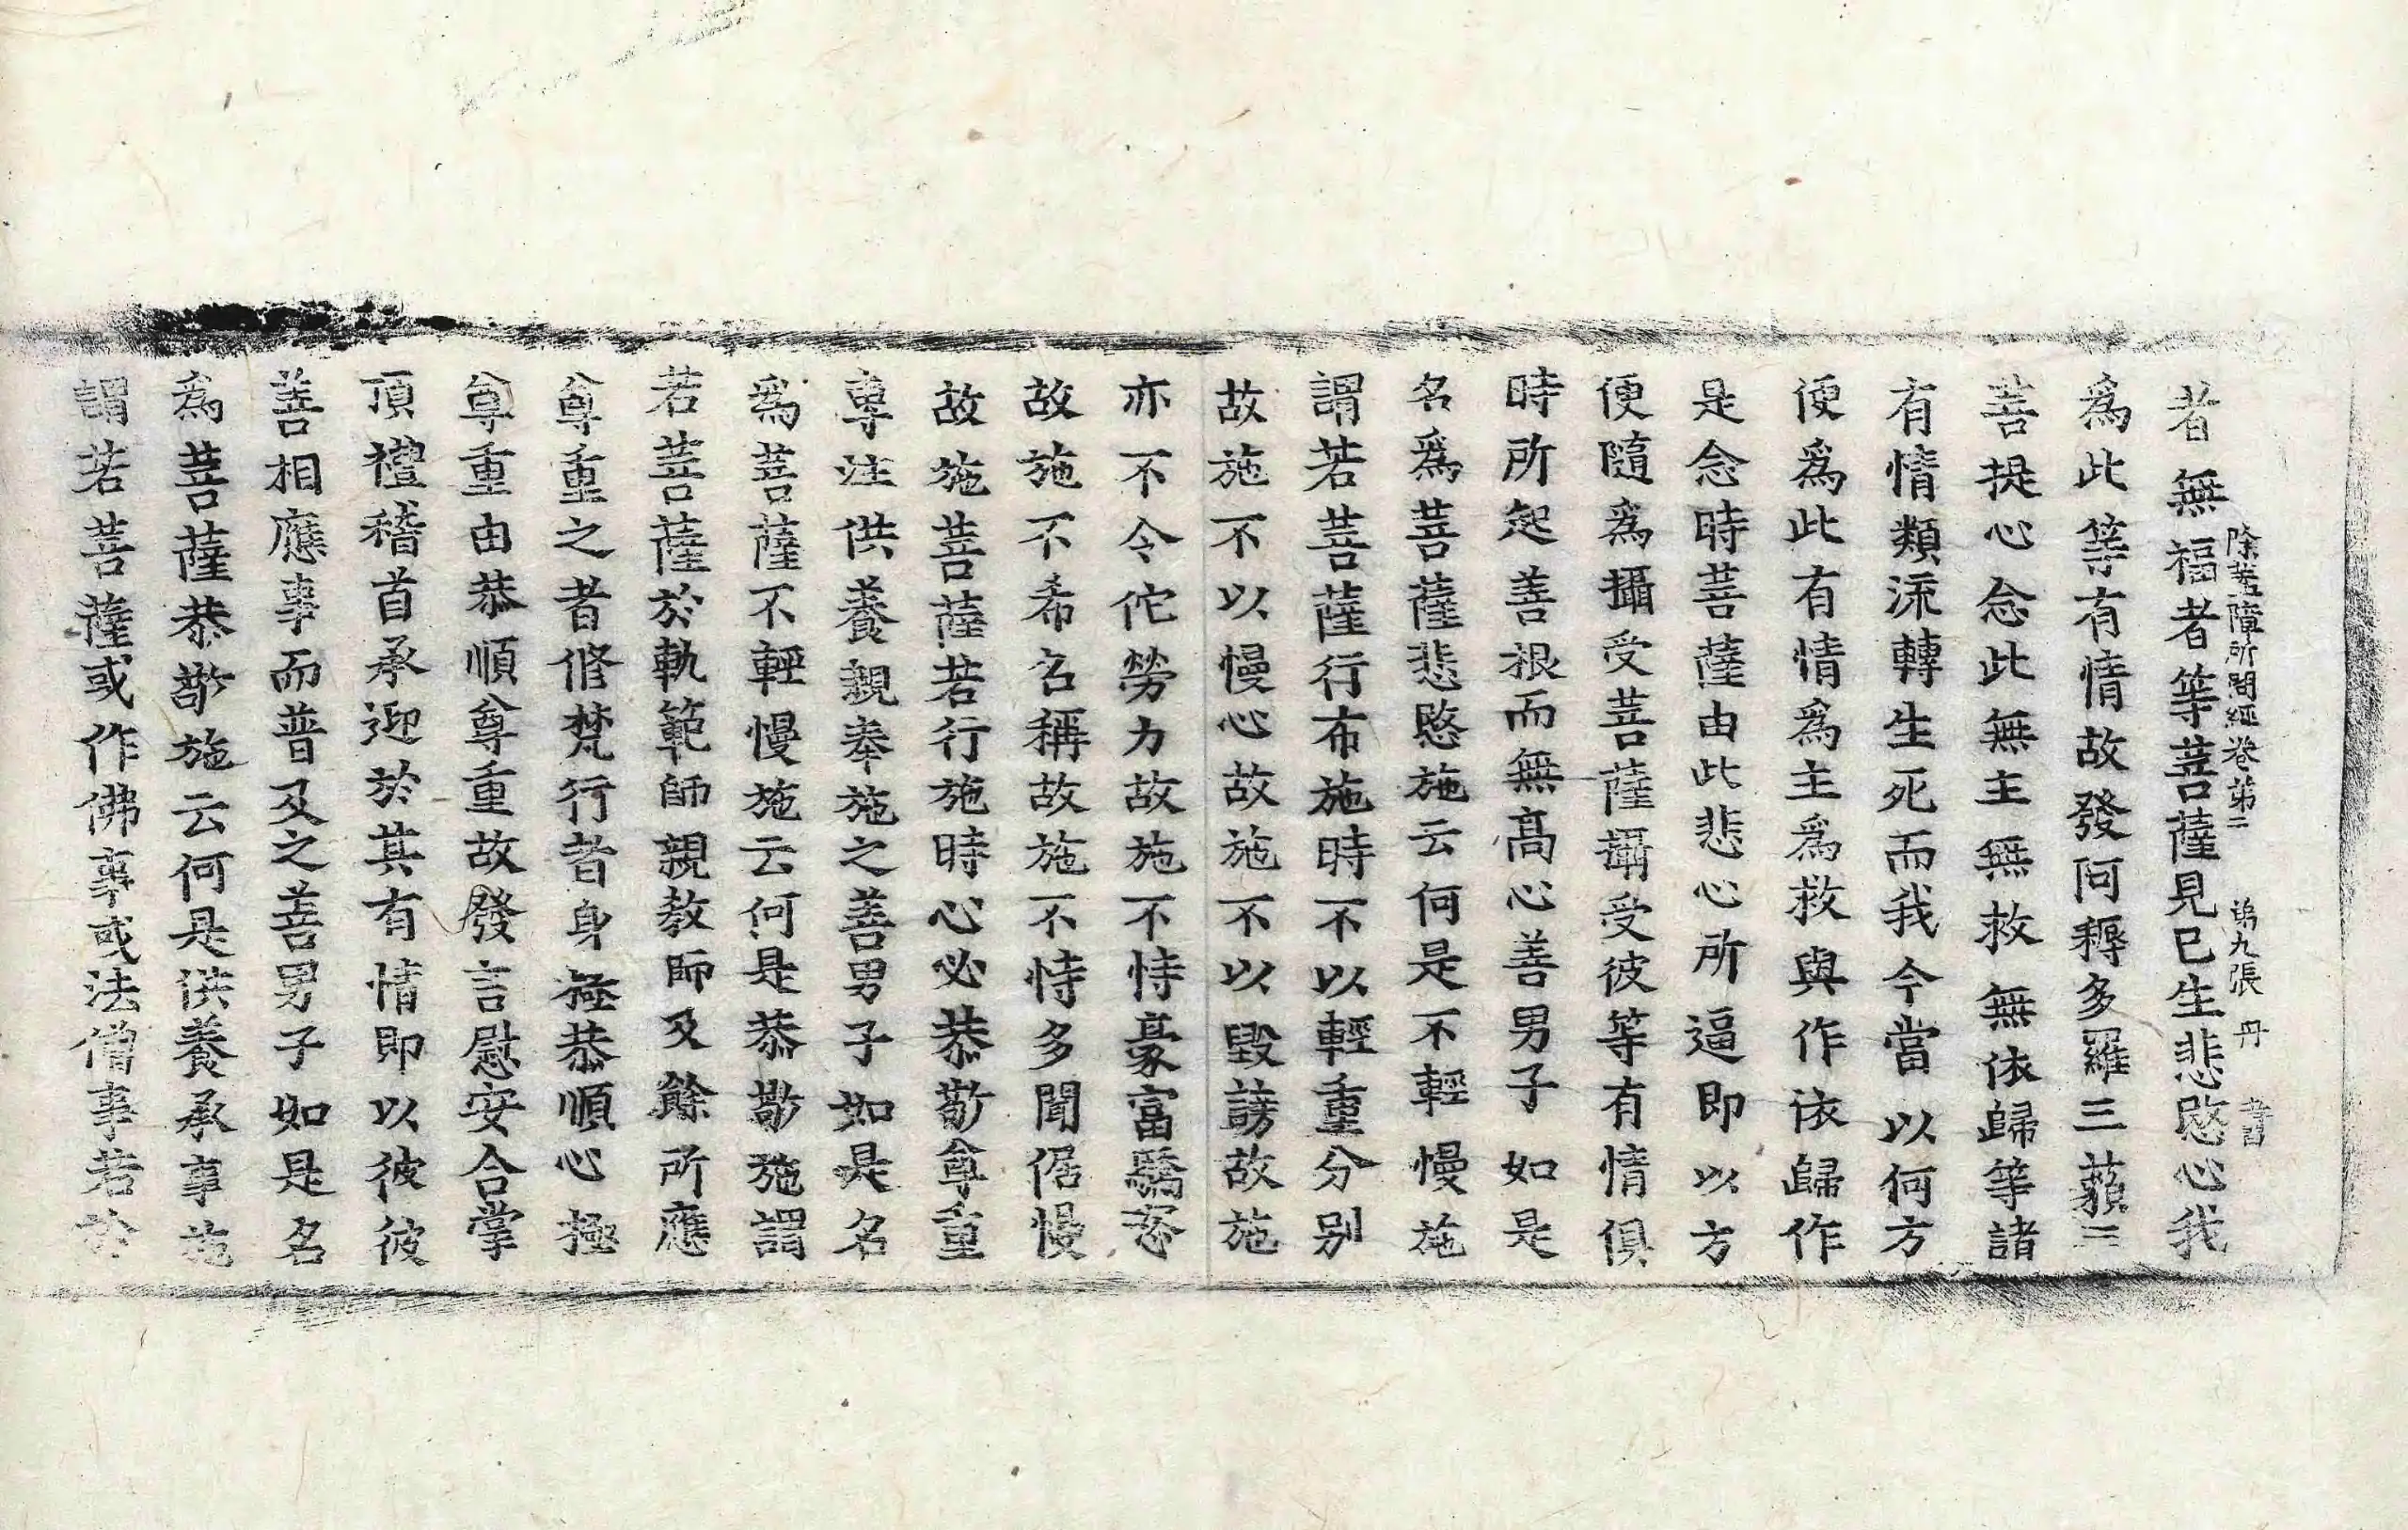 除蓋障所問經卷第二 第九張 丹
者無福者等菩薩見已生悲愍心我
爲此等有情故發阿耨多羅三藐三
菩提心念此無主無救無依歸等諸
有情類流轉生死而我今當以何方
便爲此有情爲主爲救與作依歸作
是念時菩薩由此悲心所逼即以方
便隨爲攝受菩薩攝受彼等有情俱
時所起善根而無高心善男子如是
名爲菩薩悲愍施云何是不輕慢施
謂若菩薩行布施時不以輕重分别
故施不以慢心故施不以毀謗故施
亦不令佗勞力故施不恃豪富驕恣
故施不希名稱故施不恃多聞倨慢
故施菩薩若行施時心必恭敬尊重
專注供養親奉施之善男子如是名
爲菩薩不輕慢施云何是恭敬施謂
若菩薩於軌範師親教師及餘所應
尊重之者修梵行者身極恭順心極
尊重由恭順尊重故發言慰安合掌
頂禮稽首承迎於其有情即以彼彼
善相應事而普及之善男子如是名
爲菩薩恭敬施云何是供養承事施
謂若菩薩或作佛事或法僧事若於